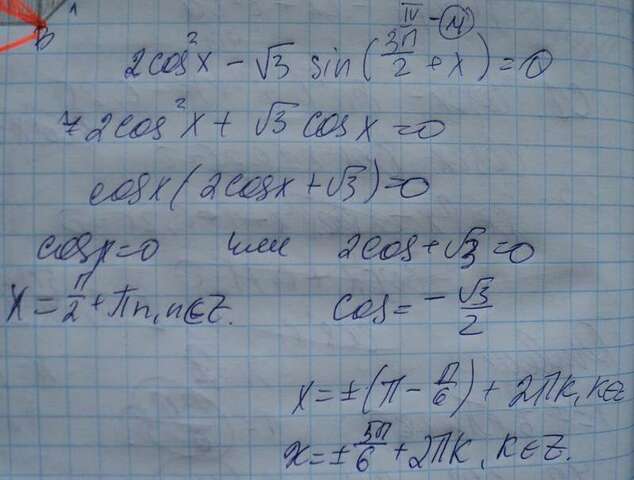 1
B
IV - M
2cos²x - √3 sin(3π/2 + x) = 0
2cos²x + √3 cosx = 0
cosx(2cosx + √3) = 0
cosx = 0 или 2cos + √3 = 0
x = π/2 + πn, n ∈ Z. cos = -√3/2
x = ±(π - π/6) + 2πk, k ∈ Z
x = ± 5π/6 + 2πk, k ∈ Z.